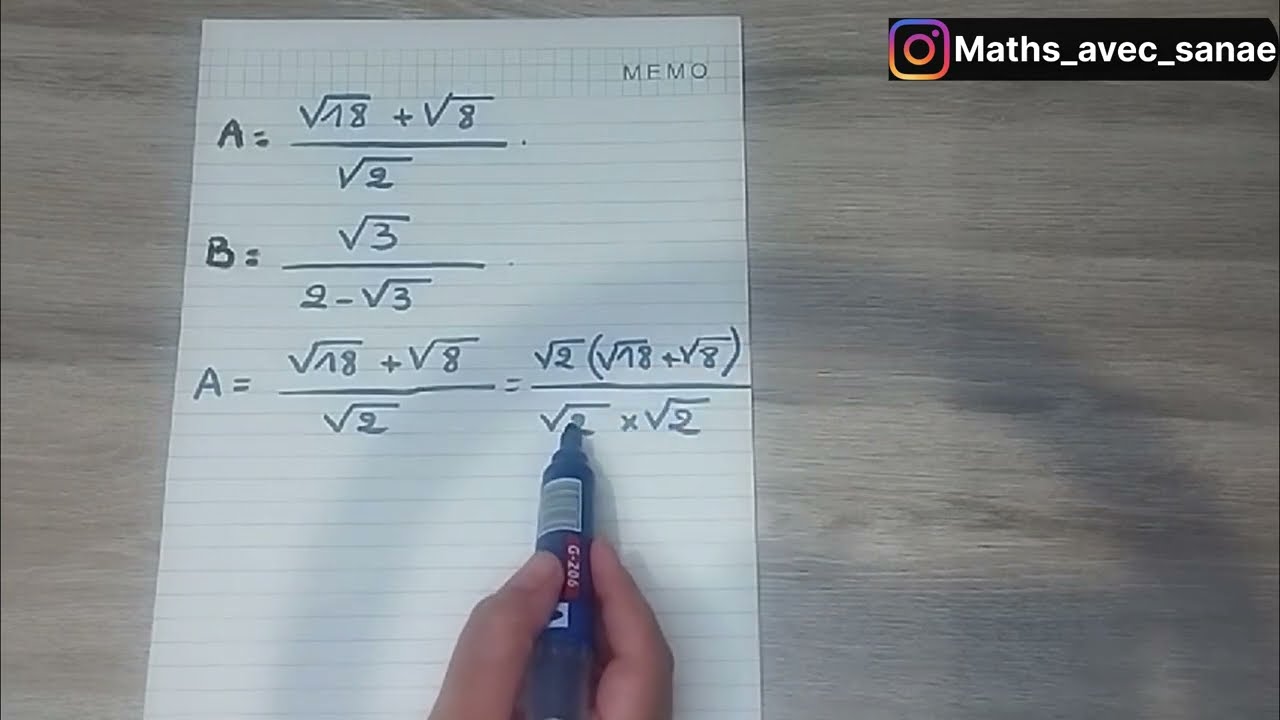 Maths_avec_sanae
MEMO
A = (√18 + √8) / √2 .
B = √3 / (2 - √3) .
A = (√18 + √8) / √2 = √2 (√18 + √8) / (√2 × √2)
G-206